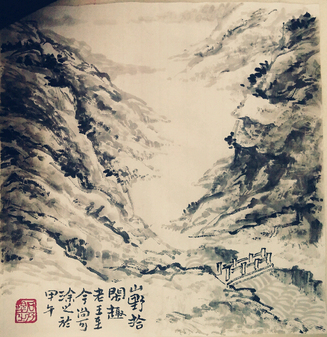 山野拾
閒趣
老王至
今尚可
涂之於
甲午